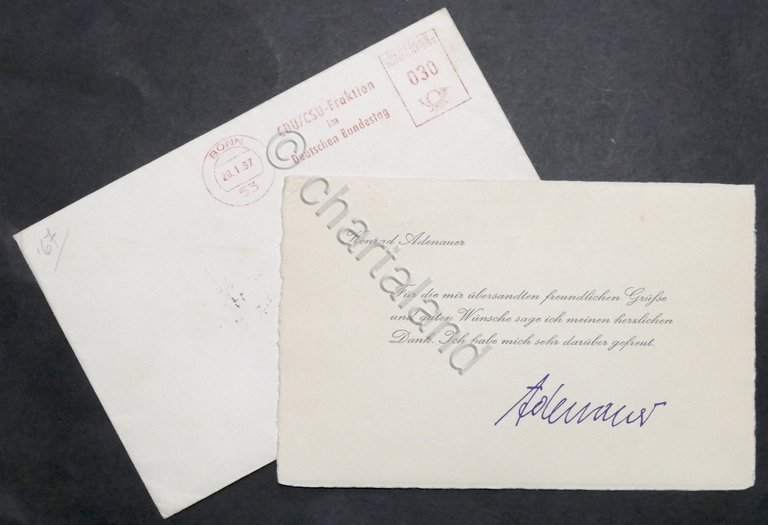 DEUTSCHE
BUNDESPOST
030
CDU/CSU-Fraktion
im
Deutschen Bundestag
BONN
20.1.67
53
'67
© chartaland
Konrad Adenauer
Für die mir übersandten freundlichen Grüße
und guten Wünsche sage ich meinen herzlichen
Dank. Ich habe mich sehr darüber gefreut.
Adenauer